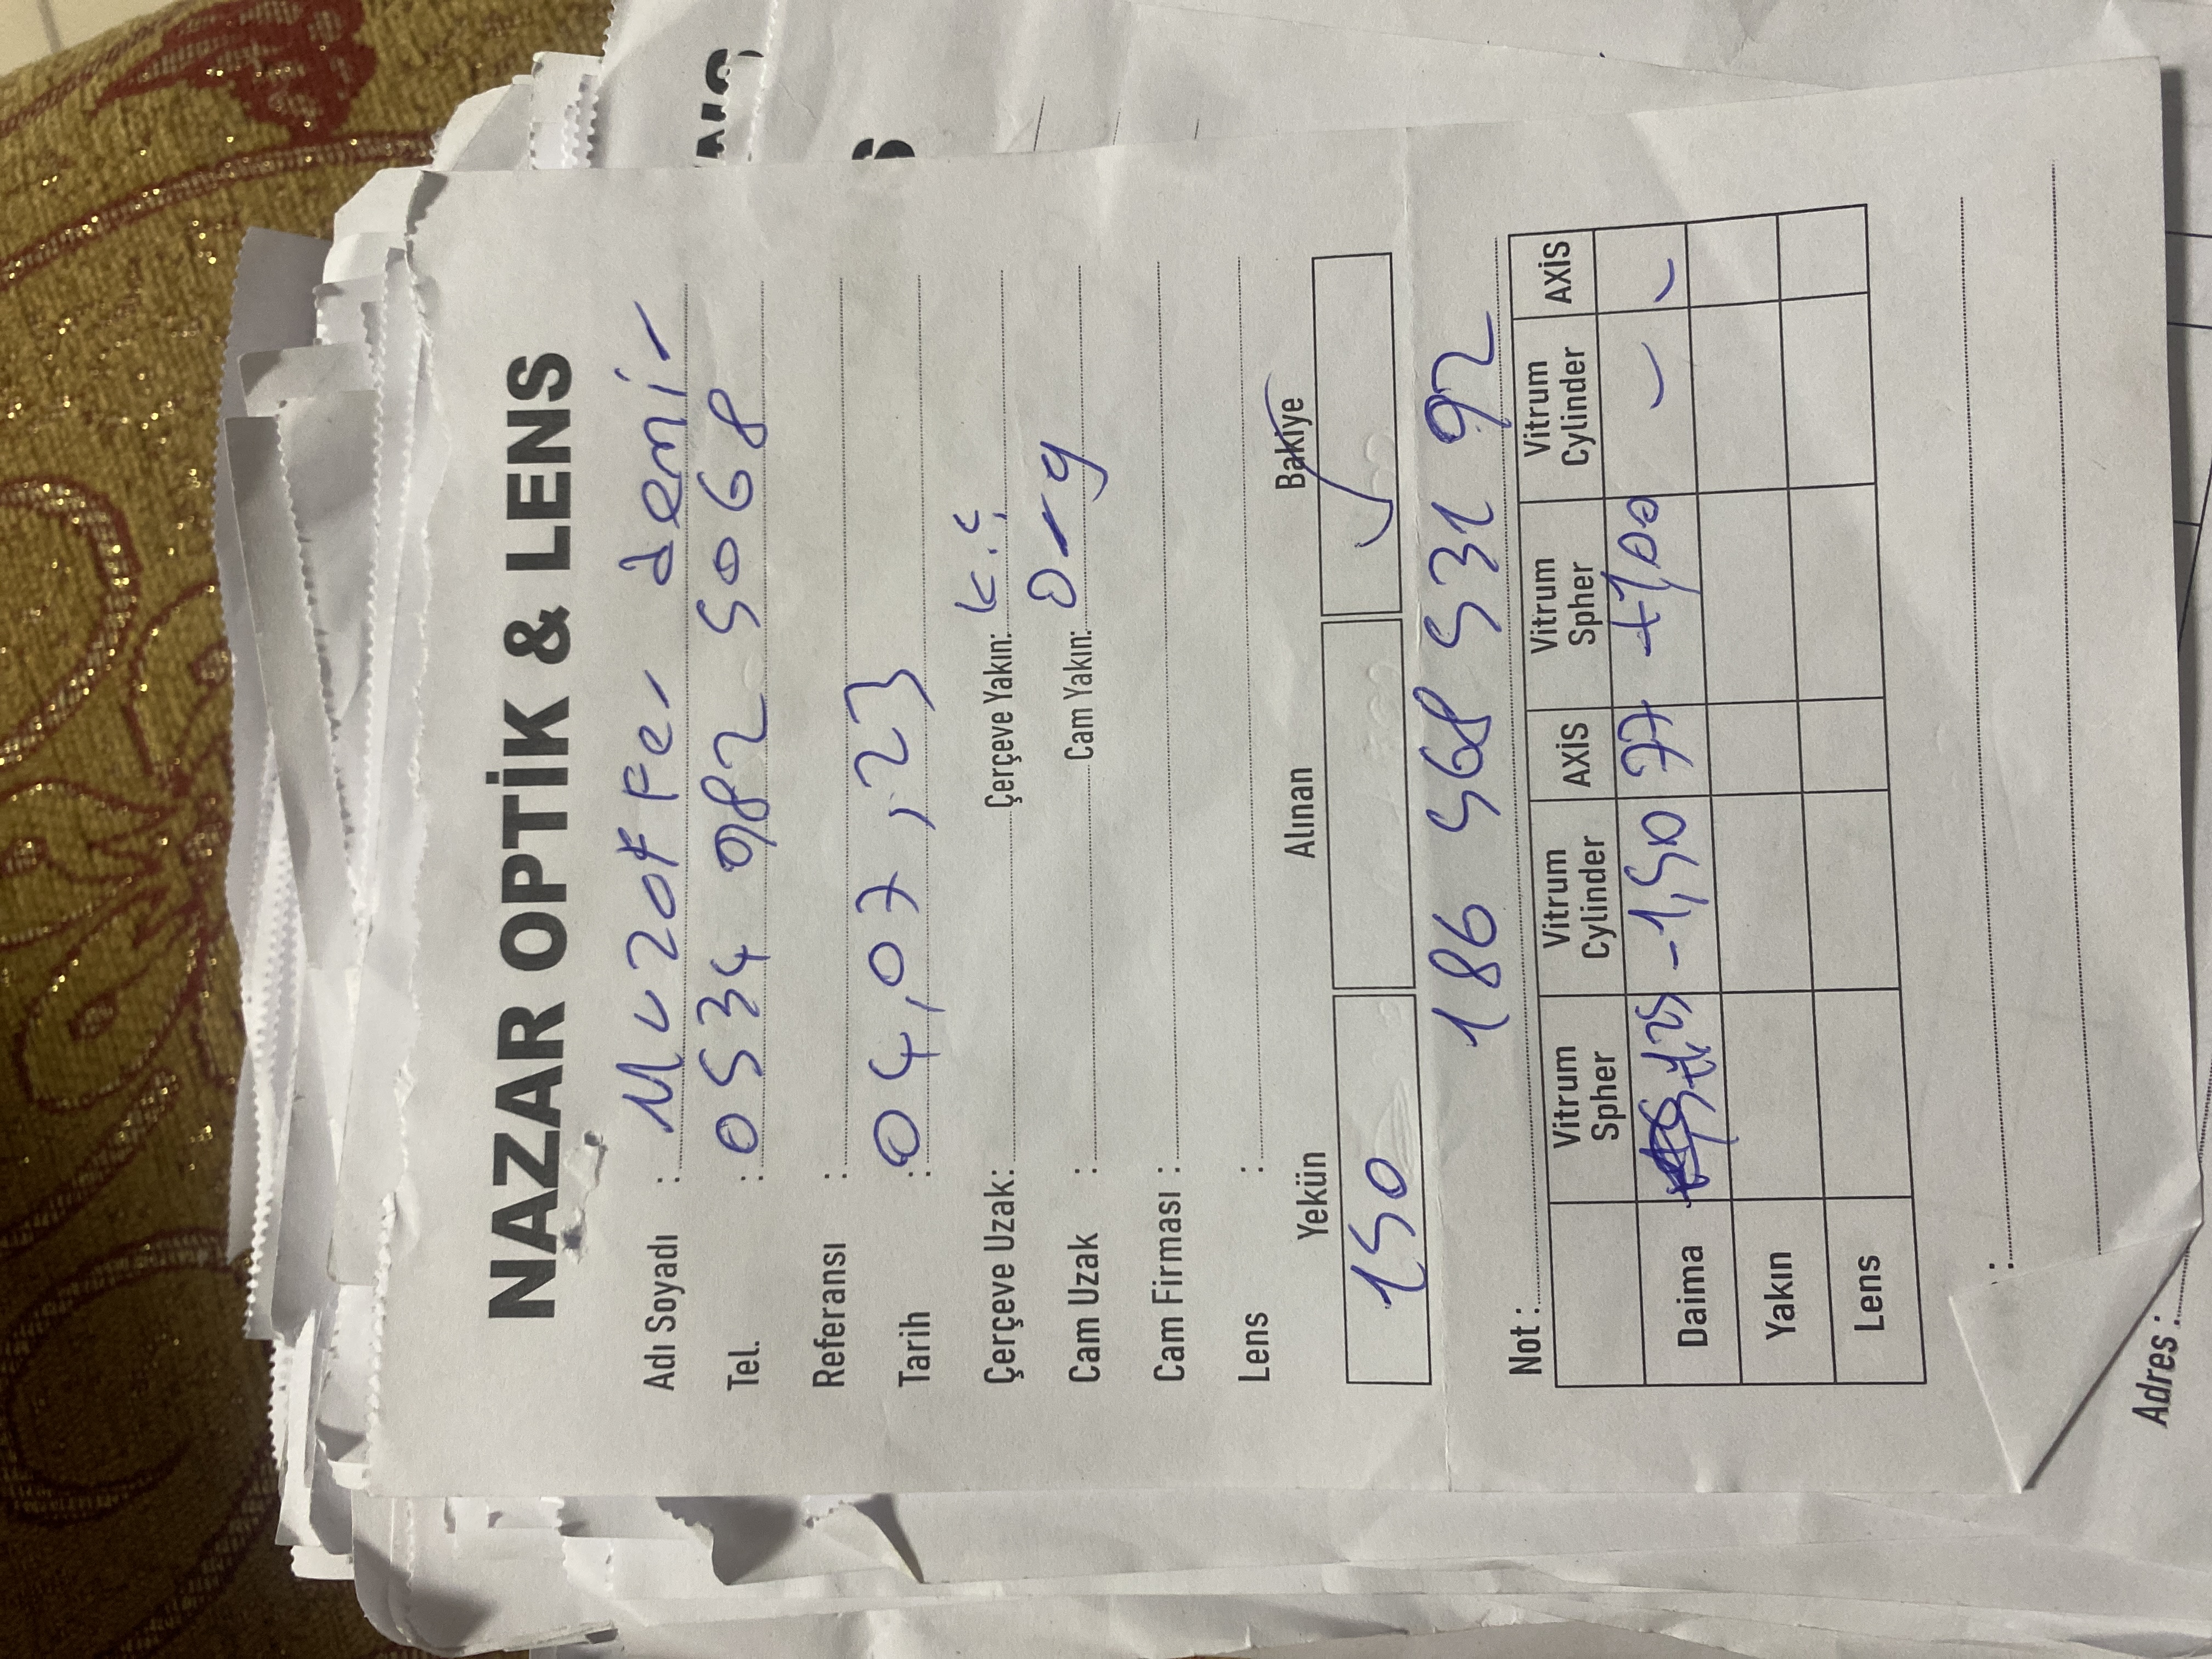 NAZAR OPTİK & LENS
Adı Soyadı : Muzaffer demir
Tel. : 0534 982 5068
Referansı :
Tarih : 04,07,23
Çerçeve Uzak: Çerçeve Yakın: k.ç
Cam Uzak : Cam Yakın: Org
Cam Firması :
Lens :
Yekün Alınan Bakiye
150 ✓
186 568 531 92
Not :
Vitrum Spher Vitrum Cylinder AXİS Vitrum Spher Vitrum Cylinder AXİS
Daima +1,25 -1,50 77 +1,00 - -
Yakın
Lens
:
Adres :